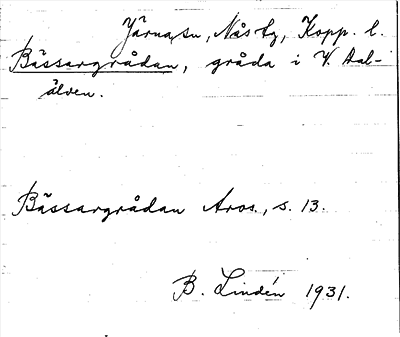 Järna sn, Nås tg, Kopp. l.
Bässargrådan, gråda i V. Dal-
älven.
Bässargrådan Aros., s. 13.
B. Lindén 1931.